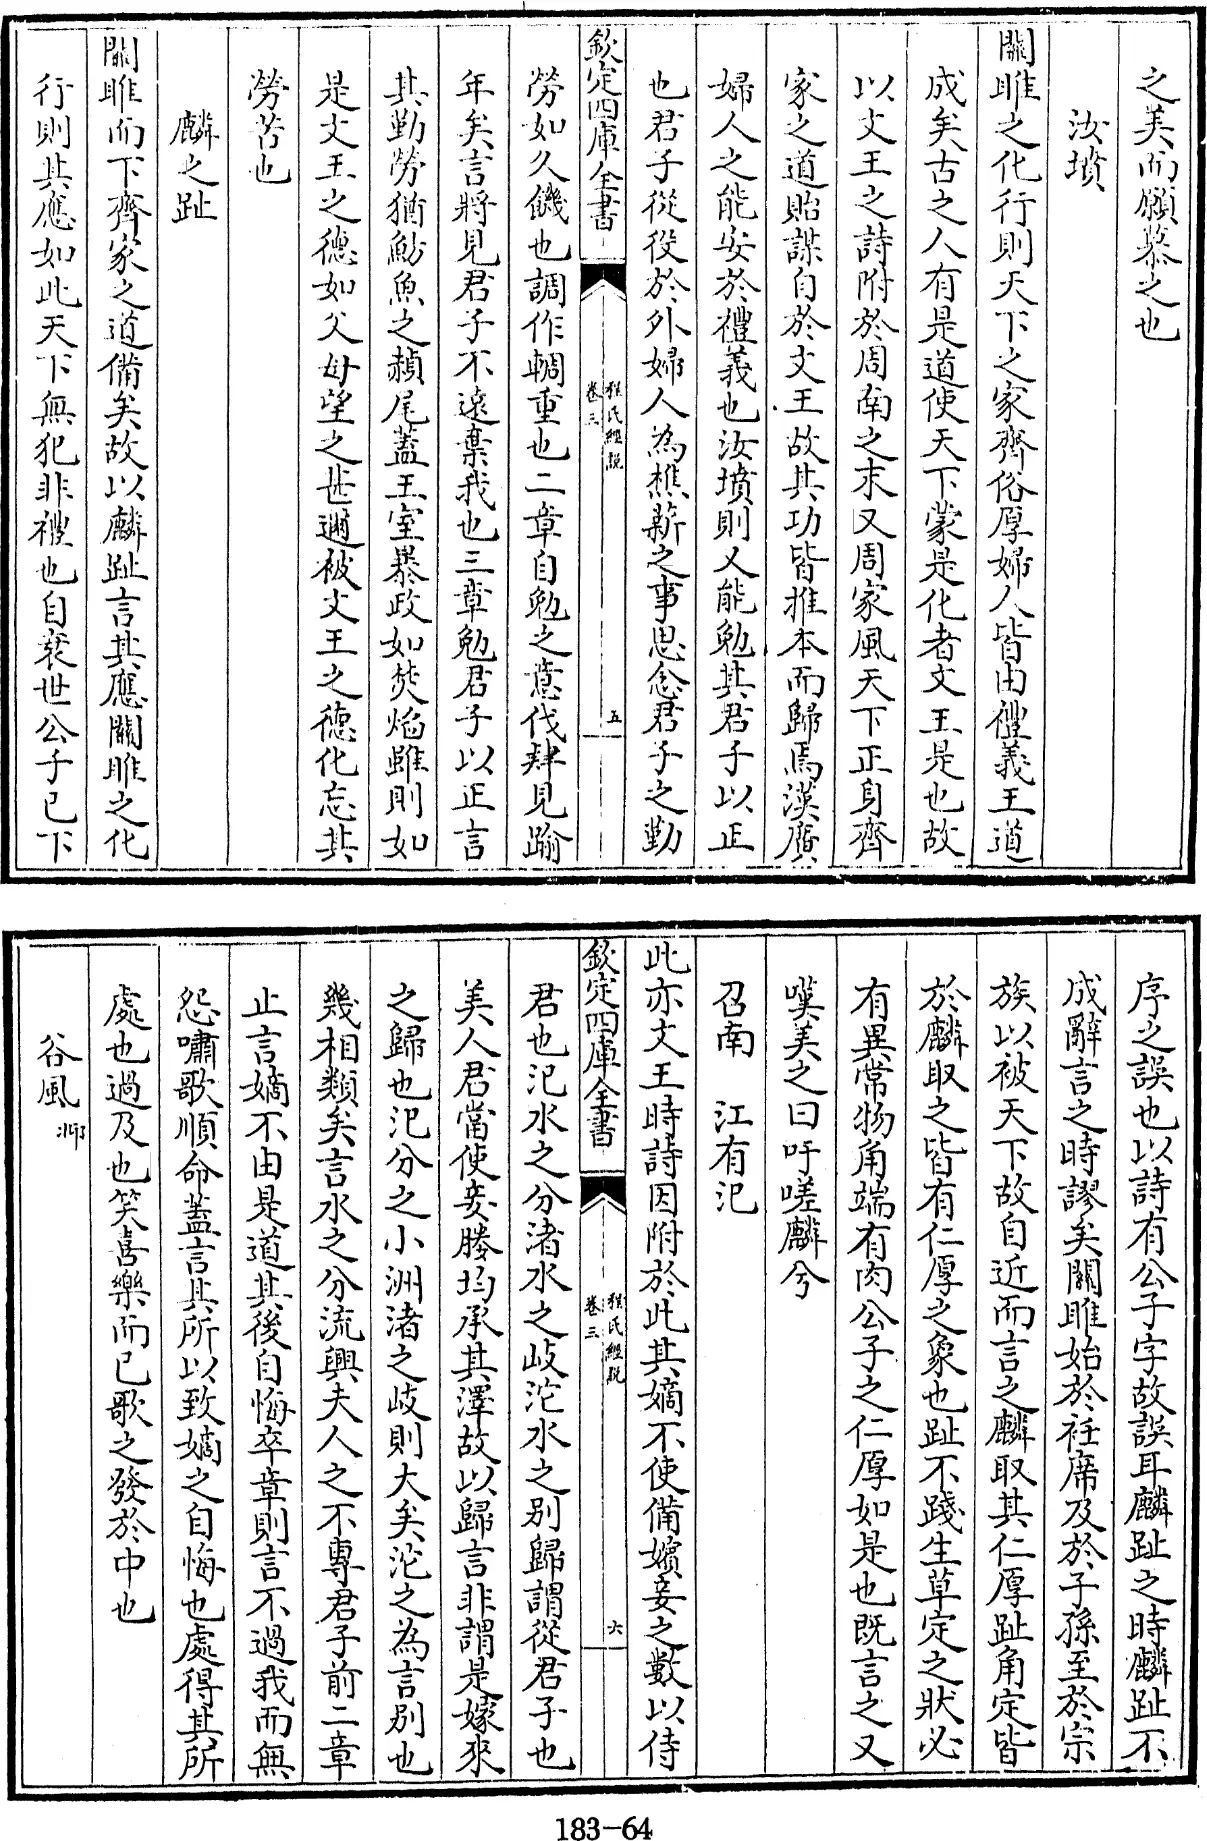 之美而願慕之也
汝墳
關雎之化行則天下之家齊俗厚婦人皆由禮義王道
成矣古之人有是道使天下蒙是化者文王是也故
以文王之詩附於周南之末又周家風天下正身齊
家之道貽謀自於文王故其功皆推本而歸焉漢廣
婦人之能安於禮義也汝墳則又能勉其君子以正
也君子從役於外婦人為樵薪之事思念君子之勤
欽定四庫全書
程氏經說
卷三
五
勞如久饑也調作輖重也二章自勉之意伐肄見踰
年矣言將見君子不遠棄我也三章勉君子以正言
其勤勞猶魴魚之赬尾蓋王室暴政如焚焰雖則如
是文王之德如父母望之甚邇被文王之德化忘其
勞苦也
麟之趾
關雎而下齊家之道備矣故以麟趾言其應關雎之化
行則其應如此天下無犯非禮也自衰世公子已下
序之誤也以詩有公子字故誤耳麟趾之時麟趾不
成辭言之時謬矣關雎始於衽席及於子孫至於宗
族以被天下故自近而言之麟取其仁厚趾角定皆
於麟取之皆有仁厚之象也趾不踐生草定之狀必
有異常物角端有肉公子之仁厚如是也既言之又
嘆美之曰吁嗟麟兮
召南　江有汜
此亦文王時詩因附於此其嫡不使備嬪妾之數以侍
欽定四庫全書
程氏經說
卷三
六
君也汜水之分渚水之岐沱水之别歸謂從君子也
美人君當使妾媵均承其澤故以歸言非謂是嫁來
之歸也汜分之小洲渚之岐則大矣沱之為言别也
幾相類矣言水之分流興夫人之不專君子前二章
止言嫡不由是道其後自悔卒章則言不過我而無
怨嘯歌順命蓋言其所以致嫡之自悔也處得其所
處也過及也笑喜樂而已歌之發於中也
谷風邶
183-64